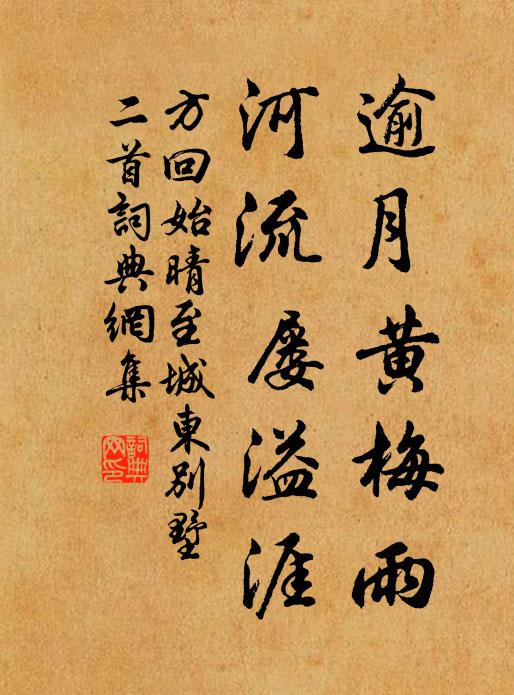 逾月黄梅雨
河流屡溢涯
方回始晴至城東别墅
二首詞典網集
詞典網印